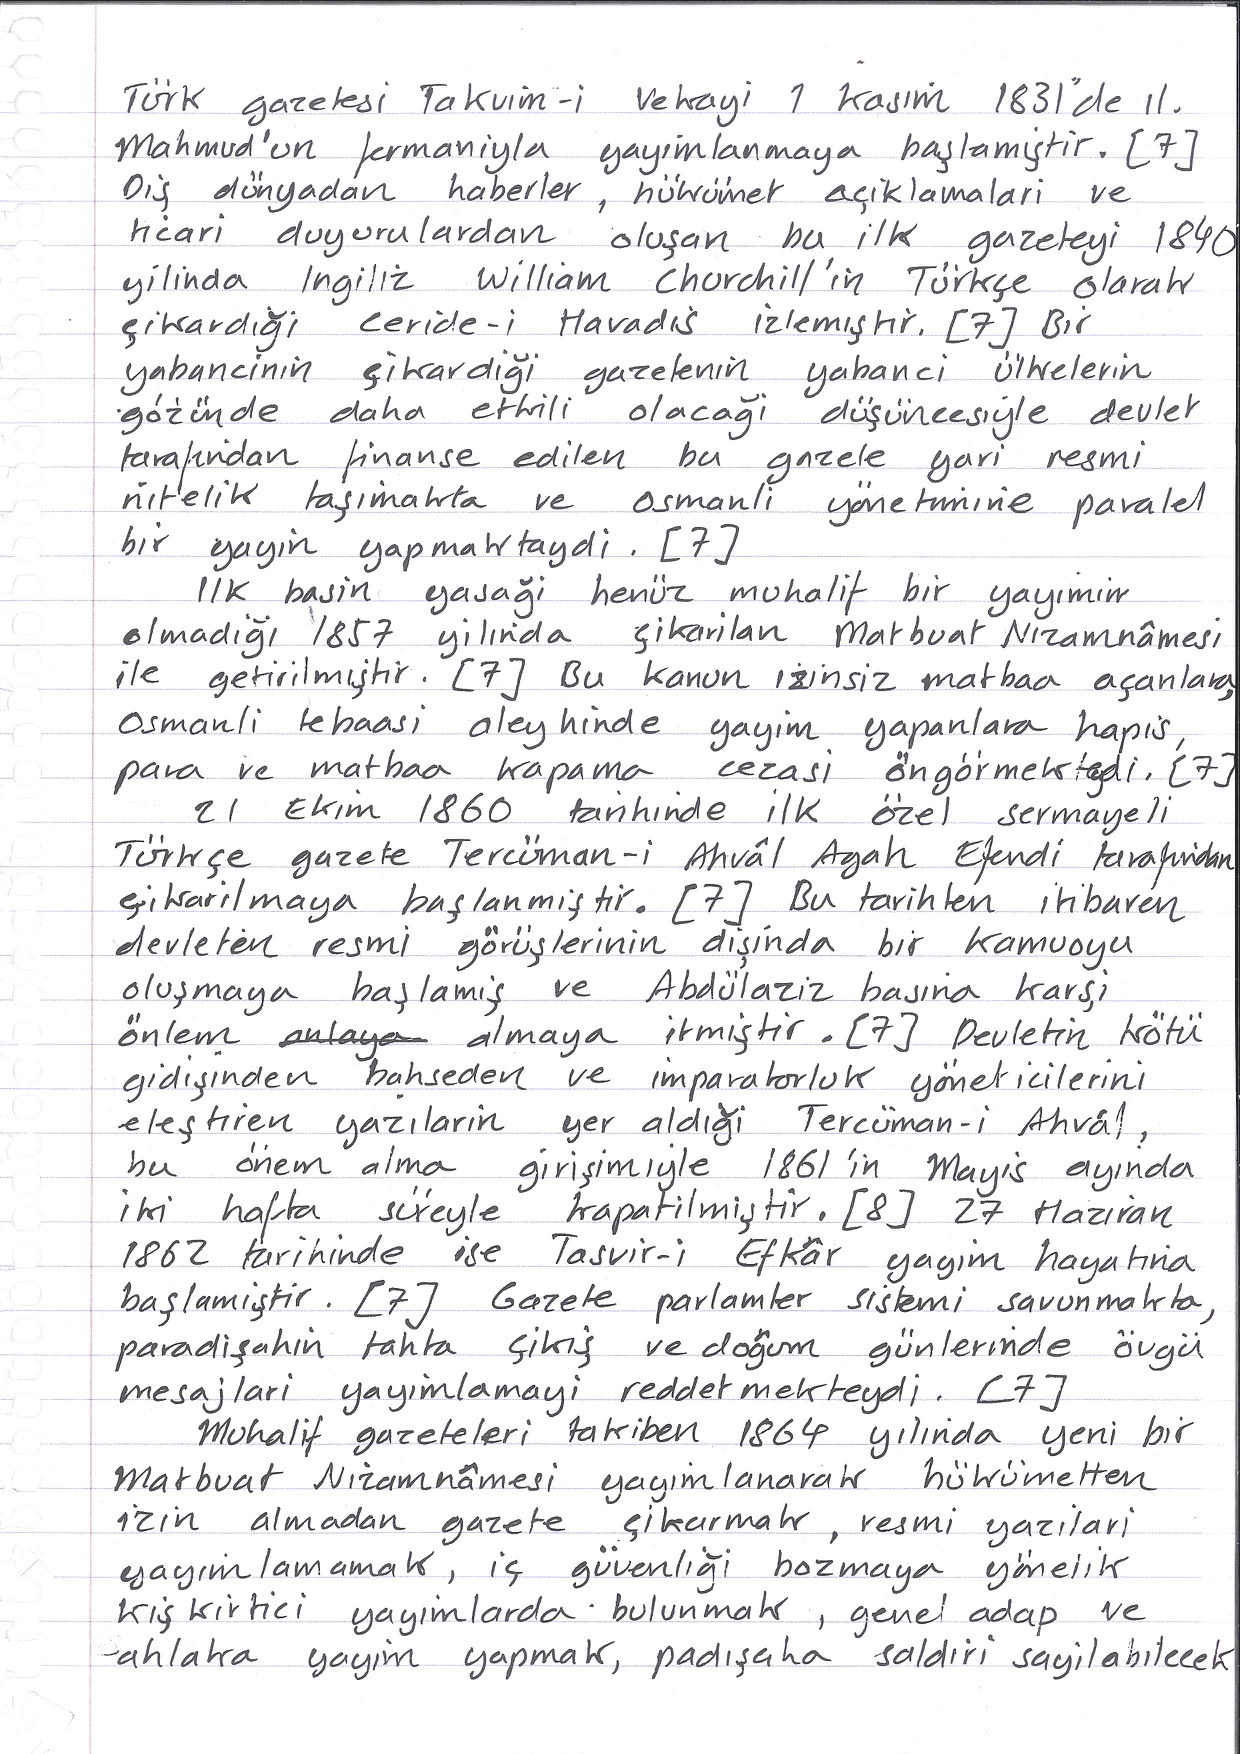 Türk gazetesi Takvim-i Vekayi 1 Kasım 1831'de II.
Mahmud'un fermanıyla yayımlanmaya başlamıştır. [7]
Dış dünyadan haberler, hükümet açıklamaları ve
ticari duyurulardan oluşan bu ilk gazeteyi 1840
yılında İngiliz William Churchill'in Türkçe olarak
çıkardığı Ceride-i Havadis izlemiştir. [7] Bir
yabancının çıkardığı gazetenin yabancı ülkelerin
gözünde daha etkili olacağı düşüncesiyle devlet
tarafından finanse edilen bu gazete yarı resmi
nitelik taşımakta ve Osmanlı yönetimine paralel
bir yayın yapmaktaydı. [7]
İlk basın yasağı henüz muhalif bir yayımın
olmadığı 1857 yılında çıkarılan Matbuat Nizamnâmesi
ile getirilmiştir. [7] Bu kanun izinsiz matbaa açanlara,
Osmanlı tebaası aleyhinde yayım yapanlara hapis,
para ve matbaa kapama cezası öngörmektedi. [7]
21 Ekim 1860 tarihinde ilk özel sermayeli
Türkçe gazete Tercüman-i Ahvâl Agah Efendi tarafından
çıkarılmaya başlanmıştır. [7] Bu tarihten itibaren
devleten resmi görüşlerinin dışında bir kamuoyu
oluşmaya başlamış ve Abdülaziz basına karşı
önlem anlaya almaya itmiştir. [7] Devletin kötü
gidişinden bahseden ve imparatorluk yöneticilerini
eleştiren yazıların yer aldığı Tercüman-i Ahvâl,
bu önem alma girişimiyle 1861'in Mayıs ayında
iki hafta süreyle kapatılmıştır. [8] 27 Haziran
1862 tarihinde ise Tasvir-i Efkâr yayım hayatına
başlamıştır. [7] Gazete parlamter sistemi savunmakta,
paradişahın tahta çıkış ve doğum günlerinde övgü
mesajları yayımlamayı reddetmekteydi. [7]
Muhalif gazeteleri takiben 1864 yılında yeni bir
Matbuat Nizamnâmesi yayımlanarak hükümetten
izin almadan gazete çıkarmak, resmi yazıları
yayımlamamak, iç güvenliği bozmaya yönelik
kışkırtıcı yayımlarda bulunmak, genel adap ve
ahlaka yayım yapmak, padişaha saldırı sayılabilecek